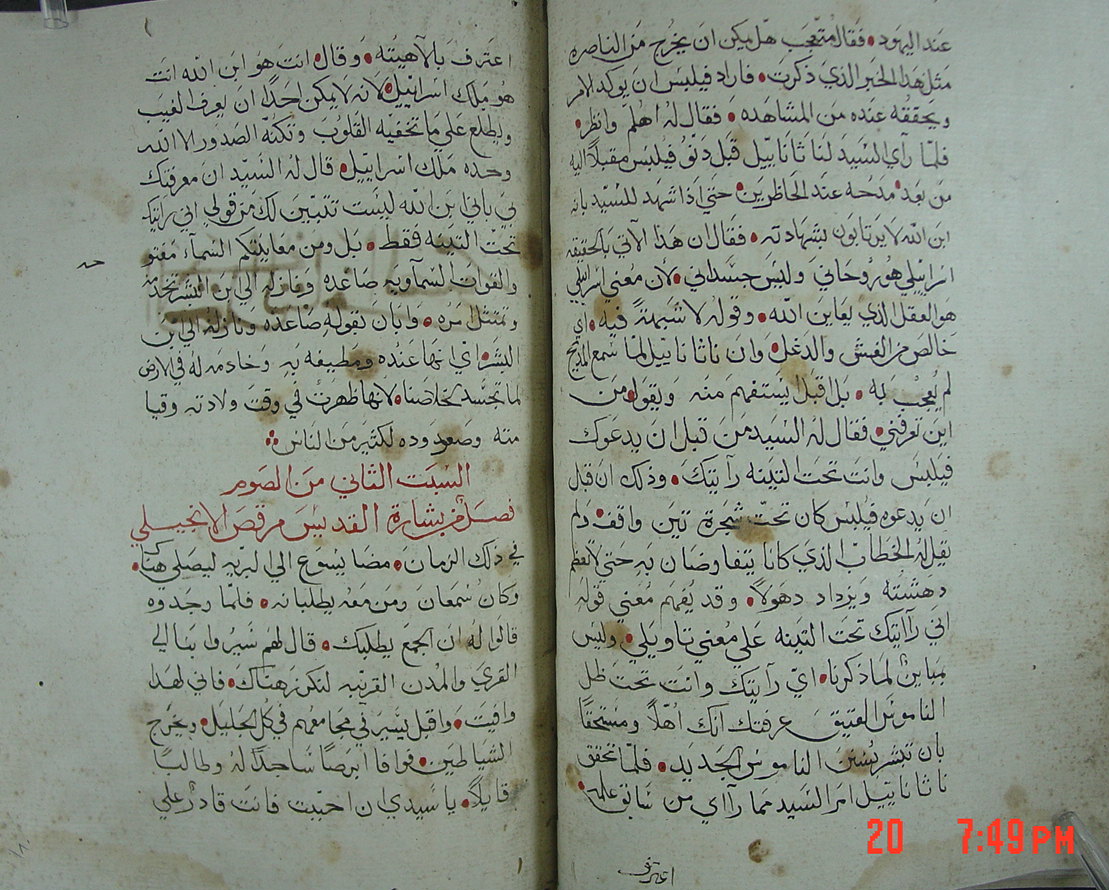 عند اليهود • فقال متعجب هل يمكن ان يخرج من الناصره
مثل هذا الخبر الذي ذكرت • فاراد فيلبس ان يوكد الامر
ويحققه عنده من المشاهده • فقال له اهلم وانظر •
فلما رآي السيد لنا ثانا ييل قبل دنو فيلبس مقبلاً اليه
من بعد • مدحه عند الحاظرين • حتي اذا شهد للسيد بانه
ابن الله لا يرتابون بشهادته • فقال ان هذا الاتي بالحقيقه
اسراييلي هو روحاني وليس جسداني • لان معني اسراييلي
هو العقل الذي يعاين الله • وقوله لا شيمة فيه • اي
خالص من الغش والدغل • وان ناثانا ييل لما سمع المديح
لم يعجب به • بل اقبل يستفهم منه ويقول من
اين تعرفني • فقال له السيد من قبل ان يدعوك
فيلبس وانت تحت التينه رآيتك • وذلك ان قبل
ان يدعوه فيلبس كان تحت شجرة تين واقف • ولم
يقل له الخطاب الذي كانا يتفاوضان به حتي لا تعظم
دهشته ويزداد دهولاً • وقد يفهم معني قوله
اني رآيتك تحت التينه علي معني تاويلي • وليس
مباين لما ذكرنا • اي رآيتك وانت تحت ظل
الناموس العتيق عرفتك انك اهلاً ومستحقاً
بان تبشر بسنن الناموس الجديد • فلما تحقق
ناثانا ييل امر السيد مما راي من سابق علمه •
اعترف
اعترف بالاهيته • وقال انت هو ابن الله انت
هو ملك اسراييل • لانه لا يمكن احداً ان يعرف الغيب
ويطلع علي ما تخفيه القلوب وتكنه الصدور الا الله
وحده ملك اسراييل • قال له السيد ان معرفتك
بي باني ابن الله ليست تتبين لك من قولي اني رايتك
تحت التينه فقط • بل ومن معاينتكم السماء مفتو
والقوات السماويه صاعده ونازله الي ابن البشر تخدمه
حه
وتمتثل امره • وابان بقوله صاعده ونازله الي ابن
البشر اي انها عنده ومطيفه به وخادمه له في الارض
لما تجسد لخلاصنا • لانها ظهرت في وقت ولادته وقيا
مته وصعوده لكثير من الناس
السبت الثاني من الصوم
فصل من بشارة القديس مرقص الانجيلي
في ذلك الزمان • مضا يسوع الي البريه ليصلي هناك •
وكان سمعان ومن معه يطلبانه • فلما وجدوه
قالوا له ان الجمع يطلبك • قال لهم سيروا بنا الي
القري والمدن القريبه لنكرز هناك • فاني لهذا
وافيت • واقبل يبشر في مجامعهم في كل الجليل • ويخرج
الشياطين • فوافا ابرصاً ساجداً له وطالباً
قايلاً • يا سيدي ان احببت فانت قادر علي
20 7:49 PM